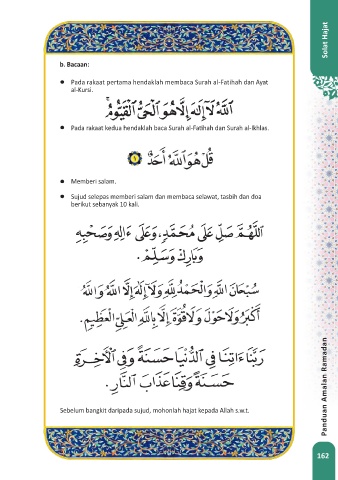 Solat Hajat
b. Bacaan:
● Pada rakaat pertama hendaklah membaca Surah al-Fatihah dan Ayat
al-Kursi.
ٱللَّهُ لَآ إِلَٰهَ إِلَّا هُوَ ٱلْحَىُّ ٱلْقَيُّومُ ۚ
● Pada rakaat kedua hendaklah baca Surah al-Fatihah dan Surah al-Ikhlas.
قُلْ هُوَ ٱللَّهُ أَحَدٌ ١
● Memberi salam.
● Sujud selepas memberi salam dan membaca selawat, tasbih dan doa
berikut sebanyak 10 kali.
اَللَّهُمَّ صَلِّ عَلَى مُحَمَّدٍ، وَعَلَى ءَالِهِ وَصَحْبِهِ
وَبَارِكْ وَسَلِّمْ.
سُبْحَانَ اللهِ وَالْحَمْدُ لِلَّهِ وَلَا إِلَهَ إِلَّا اللهُ وَاللهُ
أَكْبَرُ وَلَا حَوْلَ وَلَا قُوَّةَ إِلَّا بِاللهِ الْعَلِيِّ الْعَظِيْمِ.
رَبَّنَا ءَاتِنَا فِي الدُّنْيَا حَسَنَةً وَفِي الْأَخِرَةِ
حَسَنَةً وَقِنَا عَذَابَ النَّارِ.
Sebelum bangkit daripada sujud, mohonlah hajat kepada Allah s.w.t.
Panduan Amalan Ramadan
162